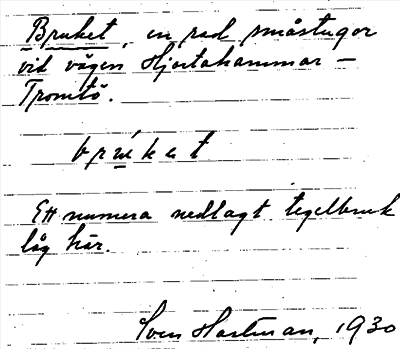 Bruket, en rad småstugor
vid vägen Hjortahammar –
Tromtö.
brúket
Ett numera nedlagt tegelbruk
låg här.
Sven Hartman, 1930